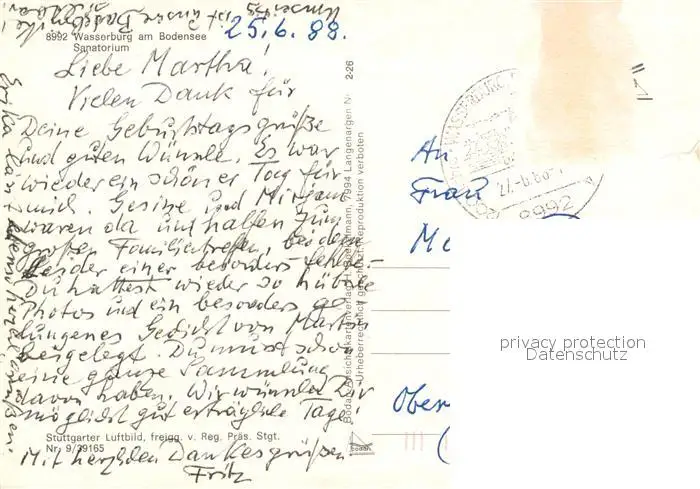 Unsere
ist unser Badestrand
8992 Wasserburg am Bodensee
Sanatorium
25.6.88.
Liebe Martha!
Vielen Dank für
Deine Geburtstagsgrüße
und guten Wünsche. Es war
wieder ein schöner Tag für
mich. Gesine und Mirjam
waren da und halfen zum
großen Familientreffen, bei dem
leider einer besonders fehlte.
Du hattest wieder so hübsche
Photos und ein besonders ge-
lungenes Gedicht von Martin
beigelegt. Du musst schon
eine ganze Sammlung
davon haben. Wir wünschen Dir
möglichst gut erträgliche Tage!
Stuttgarter Luftbild, freigg. v. Reg. Präs. Stgt.
Nr. 9/39165
Mit herzlichen Dankesgrüßen
Fritz
Erika lässt ebenso herzlich grüßen.
2-26
Bodan-Ansichtskartenverlag H. 7994 Langenargen N
Urheberrechtlich geschützt. Reproduktion verboten
bodan
WASSERBURG
27.-6.88
8992
An
Frau
Ma
Ober
(
privacy protection
Datenschutz